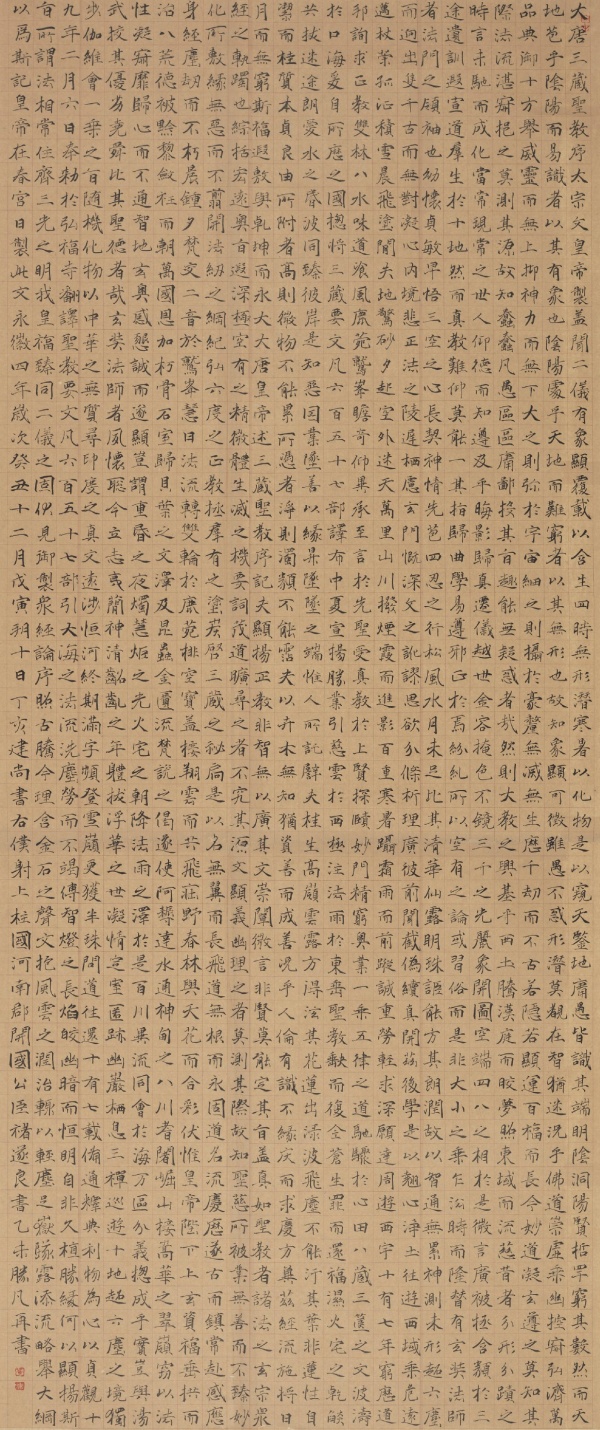 大唐三藏聖教序太宗文皇帝製蓋聞二儀有象顯覆載以含生四時無形潛寒暑以化物是以窺天鑒地庸愚皆識其端明陰洞陽賢哲罕窮其數然而天
地苞乎陰陽而易識者以其有象也陰陽處乎天地而難窮者以其無形也故知象顯可徵雖愚不惑形潛莫覩在智猶迷況乎佛道崇虛乘幽控寂弘濟萬
品典御十方舉威靈而無上抑神力而無下大之則彌於宇宙細之則攝於豪釐無滅無生歷千劫而不古若隱若顯運百福而長今妙道凝玄遵之莫知其
際法流湛寂挹之莫測其源故知蠢蠢凡愚區區庸鄙投其旨趣能無疑惑者哉然則大教之興基乎西土騰漢庭而皎夢照東域而流慈昔者分形分蹟之
時言未馳而成化當常現常之世人仰德而知遵及乎晦影歸真遷儀越世金容掩色不鏡三千之光麗象開圖空端四八之相於是微言廣被拯含類於三
途遺訓遐宣導群生於十地然而真教難仰莫能一其指歸曲學易遵邪正於焉紛糺所以空有之論或習俗而是非大小之乘乍沿時而隆替有玄奘法師
者法門之領袖也幼懷貞敏早悟三空之心長契神情先苞四忍之行松風水月未足比其清華仙露明珠詎能方其朗潤故以智通無累神測未形超六塵
而迥出隻千古而無對凝心內境悲正法之陵遲栖慮玄門慨深文之訛謬思欲分條析理廣彼前聞截偽續真開茲後學是以翹心淨土往遊西域乘危遠
邁杖策孤征積雪晨飛塗閒失地驚砂夕起空外迷天萬里山川撥煙霞而進影百重寒暑躡霜雨而前蹤誠重勞輕求深願達周遊西宇十有七年窮歷道
邦詢求正教雙林八水味道飡風鹿菀鷲峯瞻奇仰異承至言於先聖受真教於上賢探賾妙門精窮奧業一乘五律之道馳驟於心田八藏三篋之文波濤
於口海爰自所歷之國摠將三藏要文凡六百五十七部譯布中夏宣揚勝業引慈雲於西極注法雨於東垂聖教缺而復全蒼生罪而還福濕火宅之乾焰
共拔迷途朗愛水之昏波同臻彼岸是知惡因業墜善以緣昇昇墜之端惟人所託譬夫桂生高嶺雲露方得泫其花蓮出淥波飛塵不能汙其葉非蓮性自
潔而桂質本貞良由所附者高則微物不能累所憑者淨則濁類不能霑夫以卉木無知猶資善而成善況乎人倫有識不緣慶而求慶方冀茲經流施將日
月而無窮斯福遐敷與乾坤而永大大唐皇帝述三藏聖教序記夫顯揚正教非智無以廣其文崇闡微言非賢莫能定其旨蓋真如聖教者諸法之玄宗眾
經之軌躅也綜括宏遠奧旨遐深極空有之精微體生滅之機要詞茂道曠尋之者不究其源文顯義幽理之者莫測其際故知聖慈所被業無善而不臻妙
化所敷緣無惡而不翦開法網之綱紀弘六度之正教拯群有之塗炭啓三藏之秘扃是以名無翼而長飛道無根而永固道名流慶歷遂古而鎮常赴感應
身經塵劫而不朽晨鐘夕梵交二音於鷲峯慧日法流轉雙輪於鹿菀排空寶蓋接翔雲而共飛莊野春林與天花而合彩伏惟皇帝陛下上玄資福垂拱而
治八荒德被黔黎斂衽而朝萬國恩加朽骨石室歸貝葉之文澤及昆蟲金匱流梵說之偈遂使阿耨達水通神甸之八川耆闍崛山接嵩華之翠嶺竊以法
性凝寂靡歸心而不通智地玄奧感懇誠而遂顯豈謂重昏之夜燭慧炬之光火宅之朝降法雨之澤於是百川異流同會於海萬區分義摠成乎實豈與湯
武校其優劣堯舜比其聖德者哉玄奘法師者夙懷聰令立志夷簡神清齠齔之年體拔浮華之世凝情定室匿跡幽巖栖息三禪巡遊十地超六塵之境獨
步伽維會一乘之旨隨機化物以中華之無質尋印度之真文遠涉恒河終期滿字頻登雪嶺更獲半珠問道往還十有七載備通釋典利物為心以貞觀十
九年二月六日奉勅於弘福寺翻譯聖教要文凡六百五十七部引大海之法流洗塵勞而不竭傳智燈之長焰皎幽暗而恒明自非久植勝緣何以顯揚斯
旨所謂法相常住齊三光之明我皇福臻同二儀之固伏見御製眾經論序照古騰今理含金石之聲文抱風雲之潤治輒以輕塵足嶽墜露添流略舉大綱
以為斯記皇帝在春宮日製此文永徽四年歲次癸丑十二月戊寅朔十日丁亥建尚書右僕射上柱國河南郡開國公臣褚遂良書乙未勝凡再書